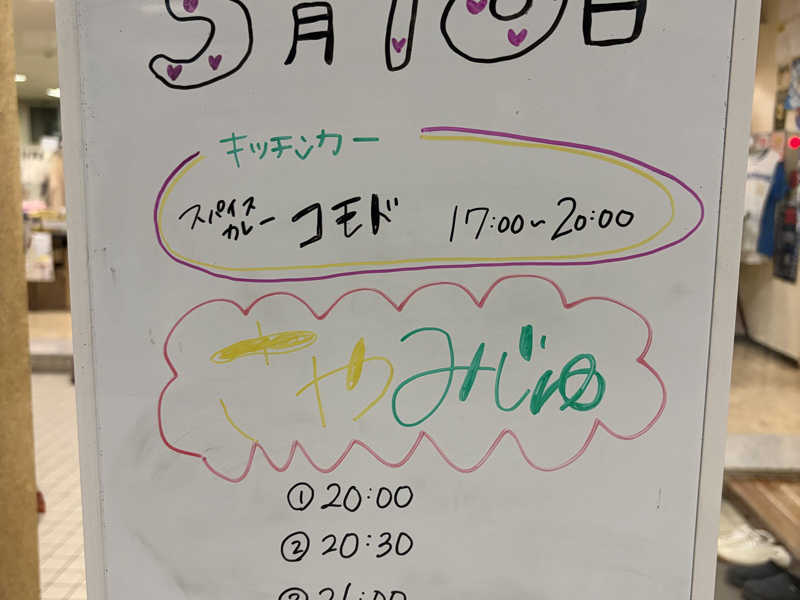 5月18日
キッチンカー
スパイスカレー コモド 17:00~20:00
さやみじゅ
①20:00
②20:30
③21:00